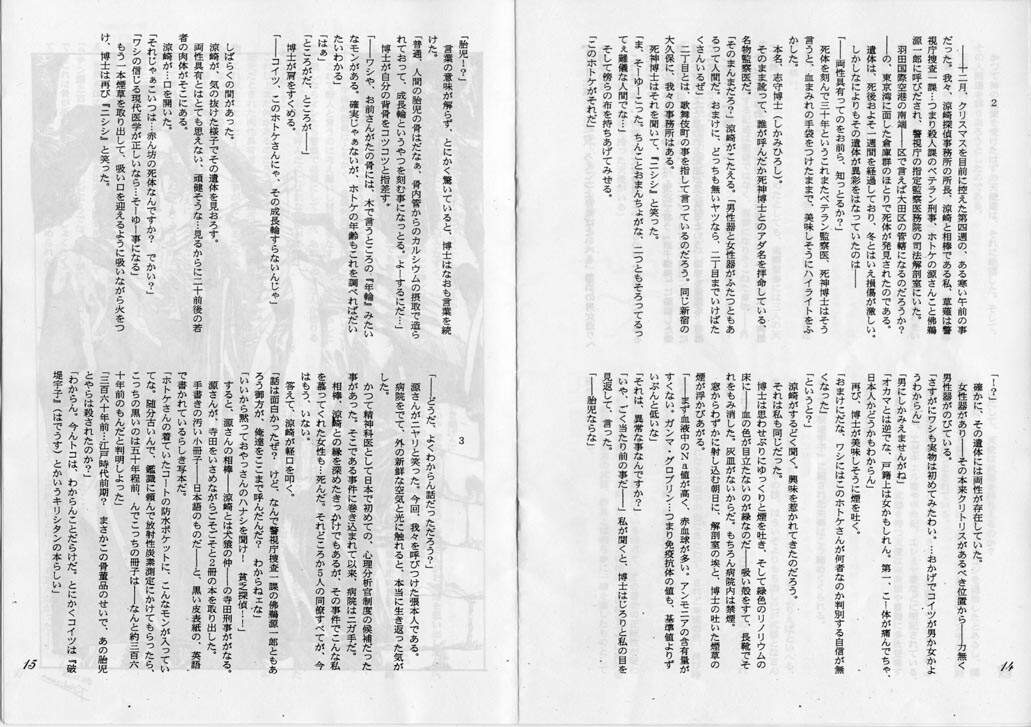 2
――十二月、クリスマスを目前に控えた第四週の、ある寒い午前の事
だった。我々、涼崎探偵事務所の所長、涼崎と相棒である私、草薙は警
視庁捜査一課…つまり殺人課のベテラン刑事、ホトケの源さんこと佛鵜
源一郎に呼びだされ、警視庁の指定監察医務院の司法解剖室にいた。
羽田国際空港の南端――区で言えば大田区の管轄になるのだろうか?
――の、東京湾に面した倉庫群のほとりで死体が発見されたのである。
遺体は、死後およそ一週間を経過しており、冬とはいえ損傷が激しい。
しかしなによりもその遺体が異彩をはなっていたのは――
「――両性具有ってのをお前ら、知っとるか?」
死体を刻んで三十年というこれまたベテラン監察医、死神博士はそう
言うと、血まみれの手袋をつけたままで、美味しそうにハイライトをふ
かした。
本名、志守博士(しかみひろし)。
そのまま読って、誰が呼んだか死神博士とのアダ名を拝命している、
名物監察医だ。
「そのまんまだろ?」涼崎がこたえる。「男性器と女性器がふたつともあ
るって人間だ。おまけに、どっちも無いヤツなら、二丁目までいけばた
くさんいるぜ」
二丁目とは、歌舞伎町の事を指して言っているのだろう。同じ新宿の
大久保に、我々の事務所はある。
死神博士はそれを聞いて、『ニシシ』と笑った。
「ま、そーゆーこっだ。ちんことおまんちょがな、二つともそろってるっつ
てぇ難儀な人間でな…」
そして傍らの布を持ちあげてみせる。
「このホトケがそれだ」
「――?」
確かに、その遺体には両性が存在していた。
女性器があり――その本来クリトリスがあるべき位置から――力無く
男性器がのびている。
「さすがにワシも実物は初めてみたわい、…おかげでコイツが男か女かよ
うわからん」
「男にしかみえませんがね」
「オカマとは逆でな、戸籍上は女かもしれん。第一、こー体が痛んでちゃ、
日本人かどうかもわからん」
再び、博士が美味しそうに煙を吐く。
「おまけにだな、ワシにはこのホトケさんが何者なのか判別する自信が無
くなった」
「というと?」
涼崎がするどく聞く。興味を惹かれてきたのだろう。
それは私も同じだった。
博士は思わせぶりにゆっくりと煙を吐き、そして緑色のリノリウムの
床に――血の色が目立たないのが緑なのだ――吸い殻をすて、長靴でそ
れをもみ消した。灰皿がないからだ。もちろん病院内は禁煙。
窓からわずかに射し込む朝日に、解剖室の埃と、博士の吐いた煙草の
煙が浮かびあがる。
「――まず血液中のNa値が高く、赤血球が多い。アンモニアの含有量が
すくない。ガンマ・グロブリン…つまり免疫抗体の値も、基準値よりず
いぶんと低いな」
「それは、異常な事なんですか?」
「いや、ごく当たり前の事だ――」私が聞くと、博士はじろりと私の目を
見返して、言った。
「――胎児ならな」
14
「胎児!?」
言葉の意味が解らず、とにかく驚いていると、博士はなおも言葉を続
けた。
「普通、人間の胎児の骨はだなぁ、骨内管からのカルシウムの摂取で造ら
れておって、成長輪というやつを刻む事になっとる。よーするにだ…」
博士が自分の背骨をコツコツと指差す。
「――ワシや、お前さんがたの骨には、木で言うところの『年輪』みたい
なモンがある。確実じゃぁないが、ホトケの年齢もこれを調べればだい
たいわかる」
「はぁ」
「ところがだ、ところが――」
博士が肩をすくめる。
「――コイツ、このホトケさんにゃ、その成長輪すらないんじゃ」
しばらくの間があった。
涼崎が、気の抜けた様子でその遺体を見おろす。
両性具有とはとても思えない、頑健そうな…見るからに二十前後の若
者の肉体がそこにある。
涼崎が…口を開いた。
「それじゃぁこいつは…赤ん坊の死体なんですか? でかい?」
「ワシの信じる現代医学が正しいなら…そーゆー事になる」
もう一本煙草を取り出して、吸い口を迎えるように吸いながら火をつ
け、博士は再び『ニシシ』と笑った。
3
「――どうだ、よくわからん話だっただろう?」
源さんがニヤリと笑う。今回、我々を呼びつけた張本人である。
病院をでて、外の新鮮な空気と光に触れると、本当に生き返った気が
した。
かつて精神科医として日本で初めての、心理分析官制度の候補だった
事があった。そこである事件に巻き込まれて以来、病院はニガ手だ。
相棒、涼崎との縁を深めたきっかけでもあるが、その事件でこんな私
を慕ってくれた女性も…死んだ。それどころか5人の同僚すべてが、今
はもう、いない。
答えて、涼崎が軽口を叩く。
「話は面白かったぜ? けど、なんで警視庁捜査一課の佛鵜源一郎ともあ
ろう御方が、俺達をここまで呼んだんだ? わからねェな」
「いいから黙っておやっさんのハナシを聞け! 貧乏探偵!!」
すると、源さんの相棒――涼崎とは犬猿の仲――の寺田刑事がなる。
源さんが、寺田をいさめながらごそごそと2冊の本を取り出した。
手書きの汚い小冊子――日本語のものだ――と、黒い皮表紙の、英語
で書かれているらしき写本だ。
「ホトケさんの着ていたコートの防水ポケットに、こんなモンが入ってい
てな。随分古いんで、鑑識に頼んで放射性炭素測定にかけてもらったら、
こっちの黒いのは五十年程前、んでこっちの冊子は――なんと約三百六
十年前のもんだと判明しよった」
「三百六十年前…江戸時代前期? まさかこの骨董品のせいで、あの胎児
とやらは殺されたのか?」
「わからん。今んトコは、わからんことだらけだ。とにかくコイツは『破
堤宇子』(はでうす)とかいうキリシタンの本らしい」
15